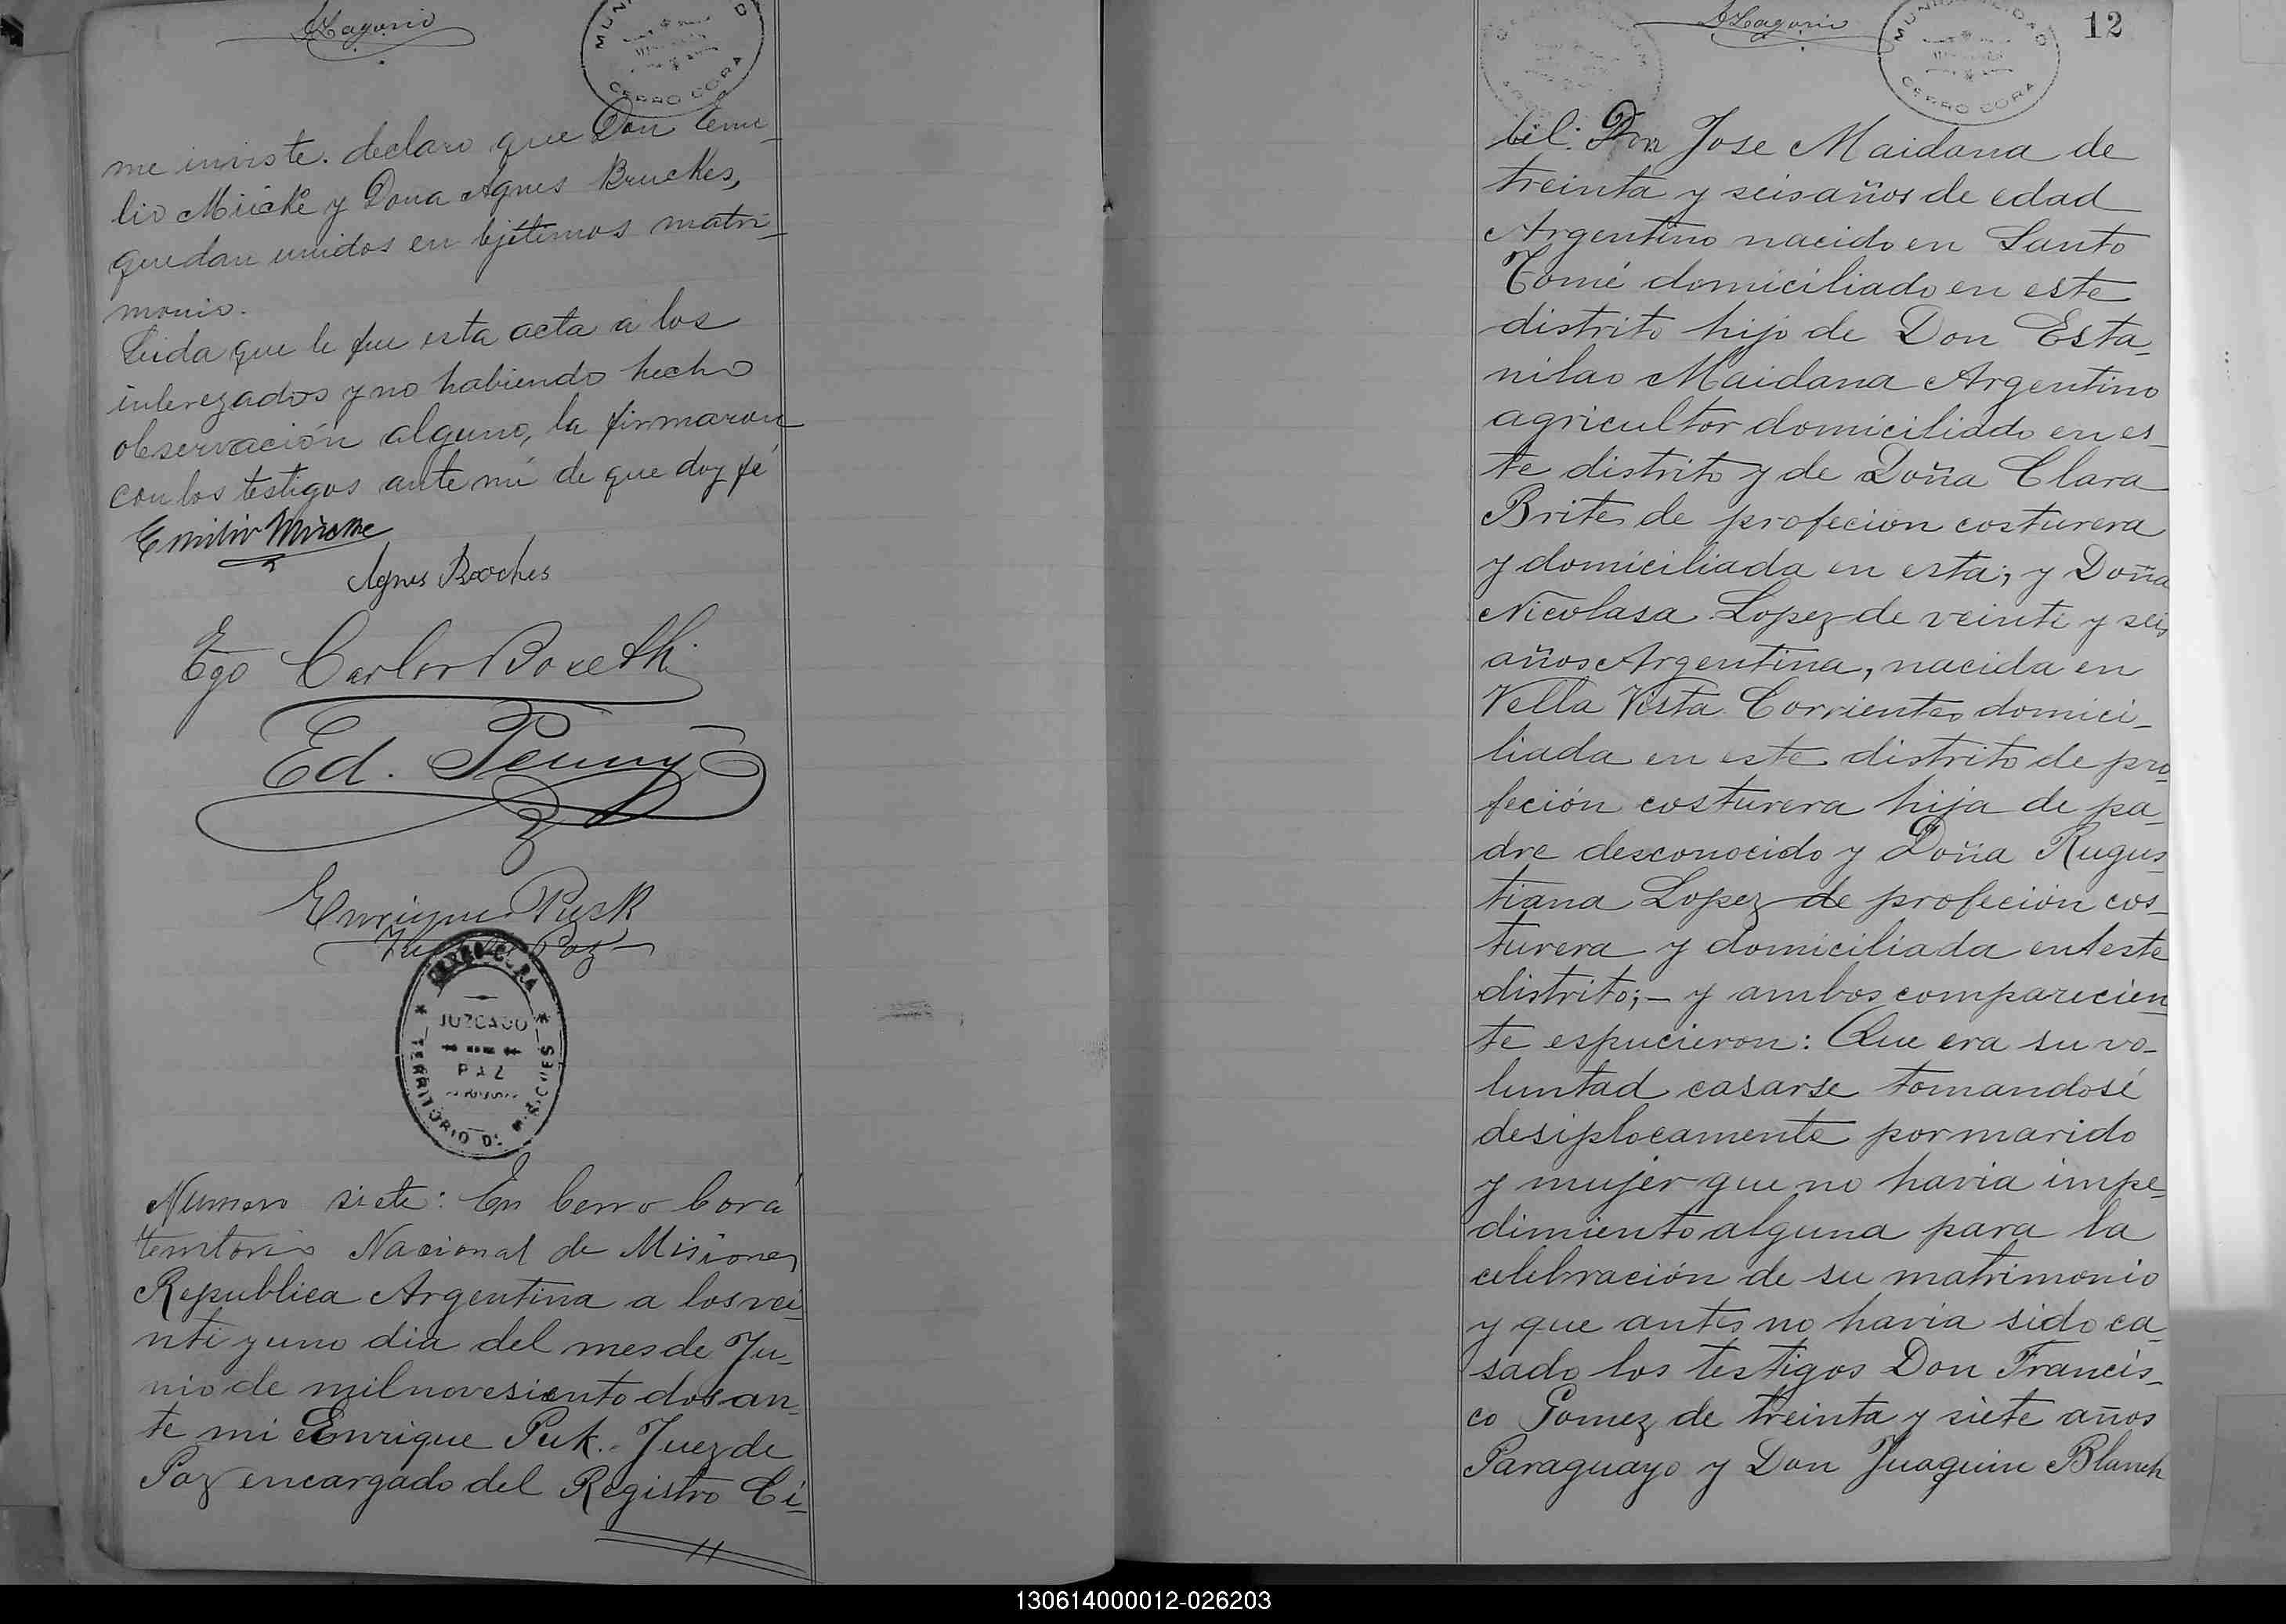 MUNICIPALIDAD
CERRO CORA
me inviste. declaro que Don Emi-
lio Mücke y Dona Agnes Bruckes,
quedan unidos en lejitimos matri-
monio.
Leida que le fue esta acta a los
interezados y no habiendo hecho
observación alguno, la firmaron
con los testigos ante mi de que doy fé
Emilio Mücke
Agnes
Ego Carlos
Ed. Penny
Enrique Puck
Juez de Paz
CERRO CORA
JUZGADO
DE
PAZ
TERRITORIO DE MISIONES
Numero siete: En Cerro Corá
territorio Nacional de Misiones
Republica Argentina a los vei-
nti y uno dia del mes de Ju-
nio de mil novesiento dos an-
te mi Enrique Puk. Juez de
Paz encargado del Registro Ci-
MUNICIPALIDAD
CERRO CORA
12
bil: Don Jose Maidana de
treinta y seis años de edad
Argentino nacido en Santo
Tomé domiciliado en este
distrito hijo de Don Esta-
nilao Maidana Argentino
agricultor domiciliado en es-
te distrito y de Doña Clara
Brites de profecion costurera
y domiciliada en esta; y Doña
Nicolasa Lopez de veinte y seis
años Argentina, nacida en
Vella Vista Corrientes domici-
liada en este distrito de pro-
feción costurera hija de pa-
dre desconocido y Doña Rugus-
tiana Lopez de profeción cos-
turera y domiciliada en este
distrito; - y ambos comparecien
te espucieron: Que era su vo-
luntad casarse tomandosé
desiplocamente por marido
y mujer que no havia impe-
dimiento alguna para la
celebración de su matrimonio
y que antes no havia sido ca-
sado los testigos Don Francis-
co Gomez de treinta y siete años
Paraguayo y Don Juaquin Blanch
130614000012-026203